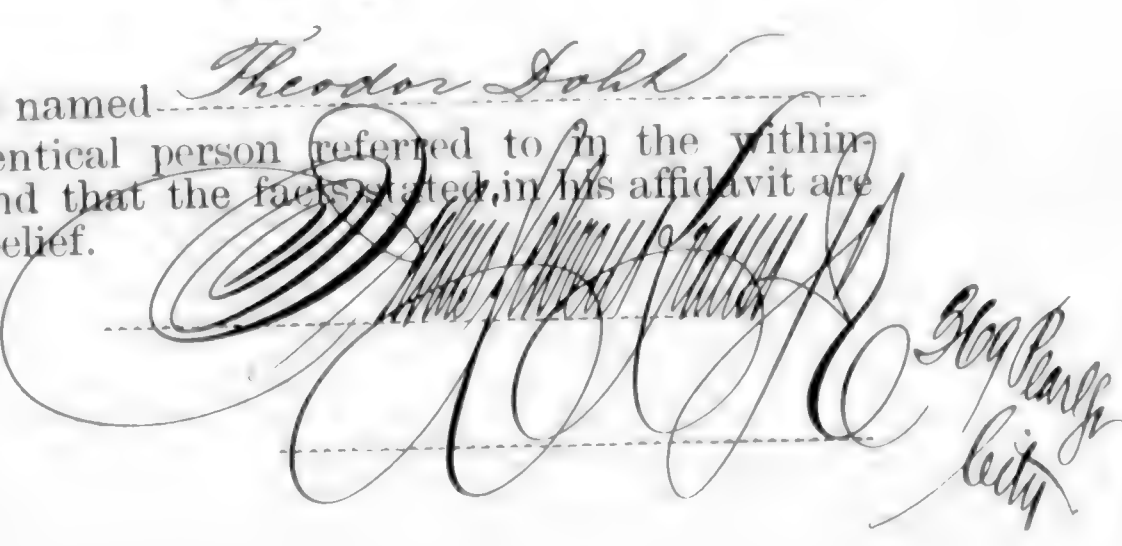 named Theodor Dohk
entical person referred to in the within-
nd that the facts stated in his affidavit are
elief.
369 Pearl St
City